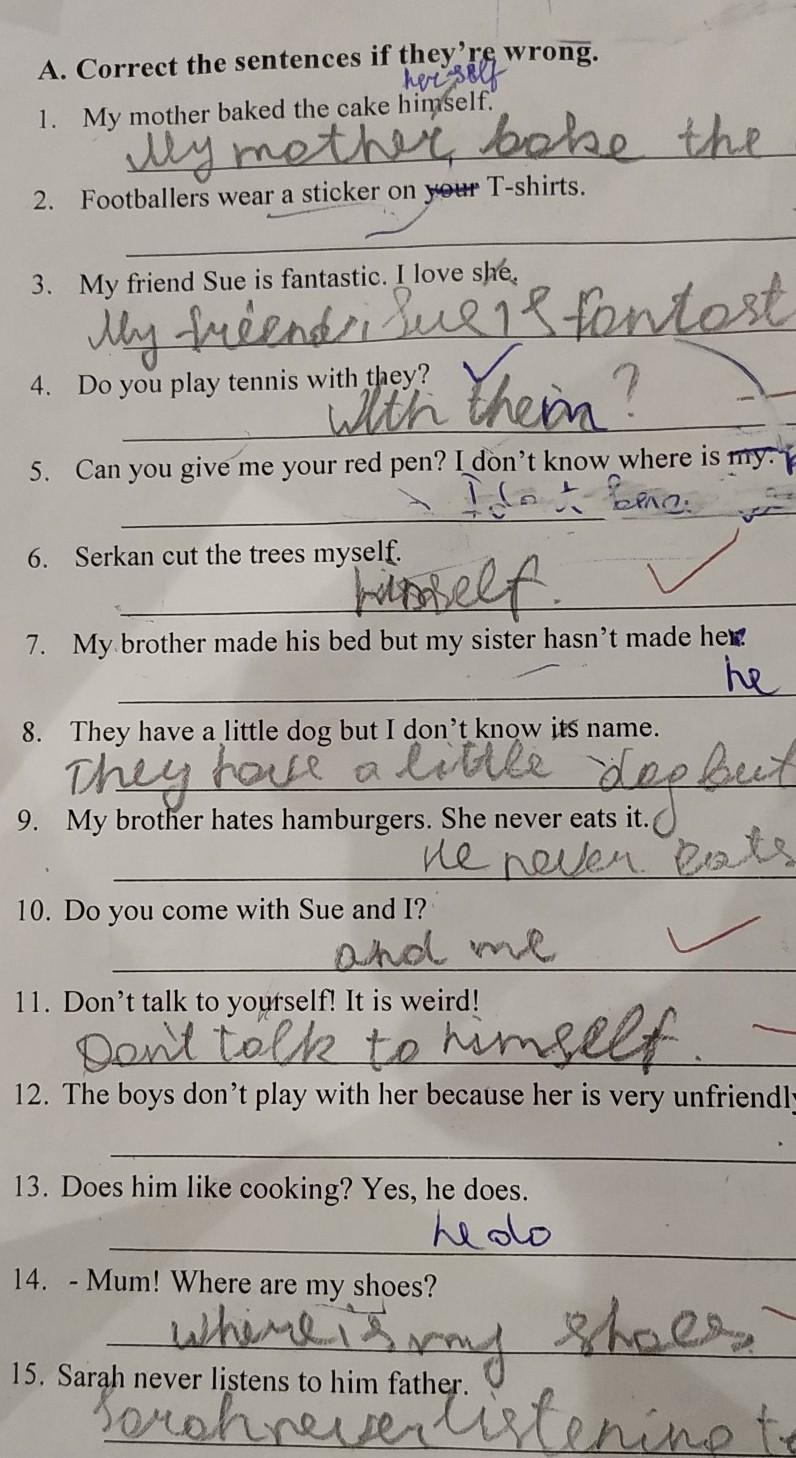 A. Correct the sentences if they're wrong.
herself
1. My mother baked the cake himself.
My mother bake the
2. Footballers wear a sticker on your T-shirts.
3. My friend Sue is fantastic. I love she.
My friend Sue is fantast
4. Do you play tennis with they?
with them?
5. Can you give me your red pen? I don't know where is my.
6. Serkan cut the trees myself.
himself.
7. My brother made his bed but my sister hasn't made her.
he
8. They have a little dog but I don't know its name.
They have a little dog but
9. My brother hates hamburgers. She never eats it.
He never eats
10. Do you come with Sue and I?
and me
11. Don't talk to yourself! It is weird!
Don't talk to himself.
12. The boys don't play with her because her is very unfriendly
13. Does him like cooking? Yes, he does.
he do
14. - Mum! Where are my shoes?
where is my shoes
15. Sarah never listens to him father.
Sarah never listening t